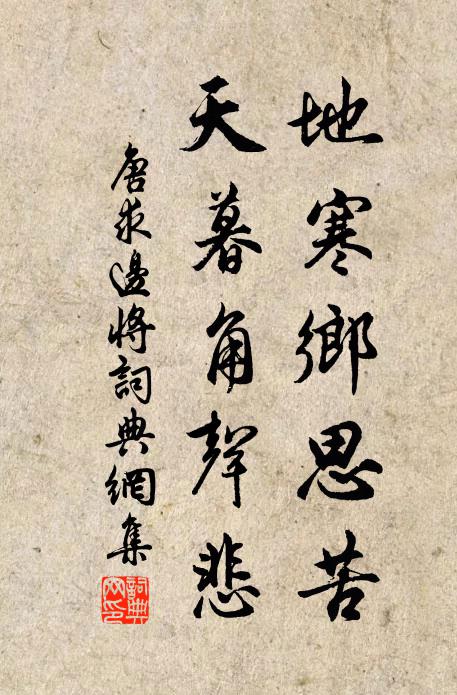 地寒鄉思苦
天暮角聲悲
唐求邊將詞典網集
詞典网印